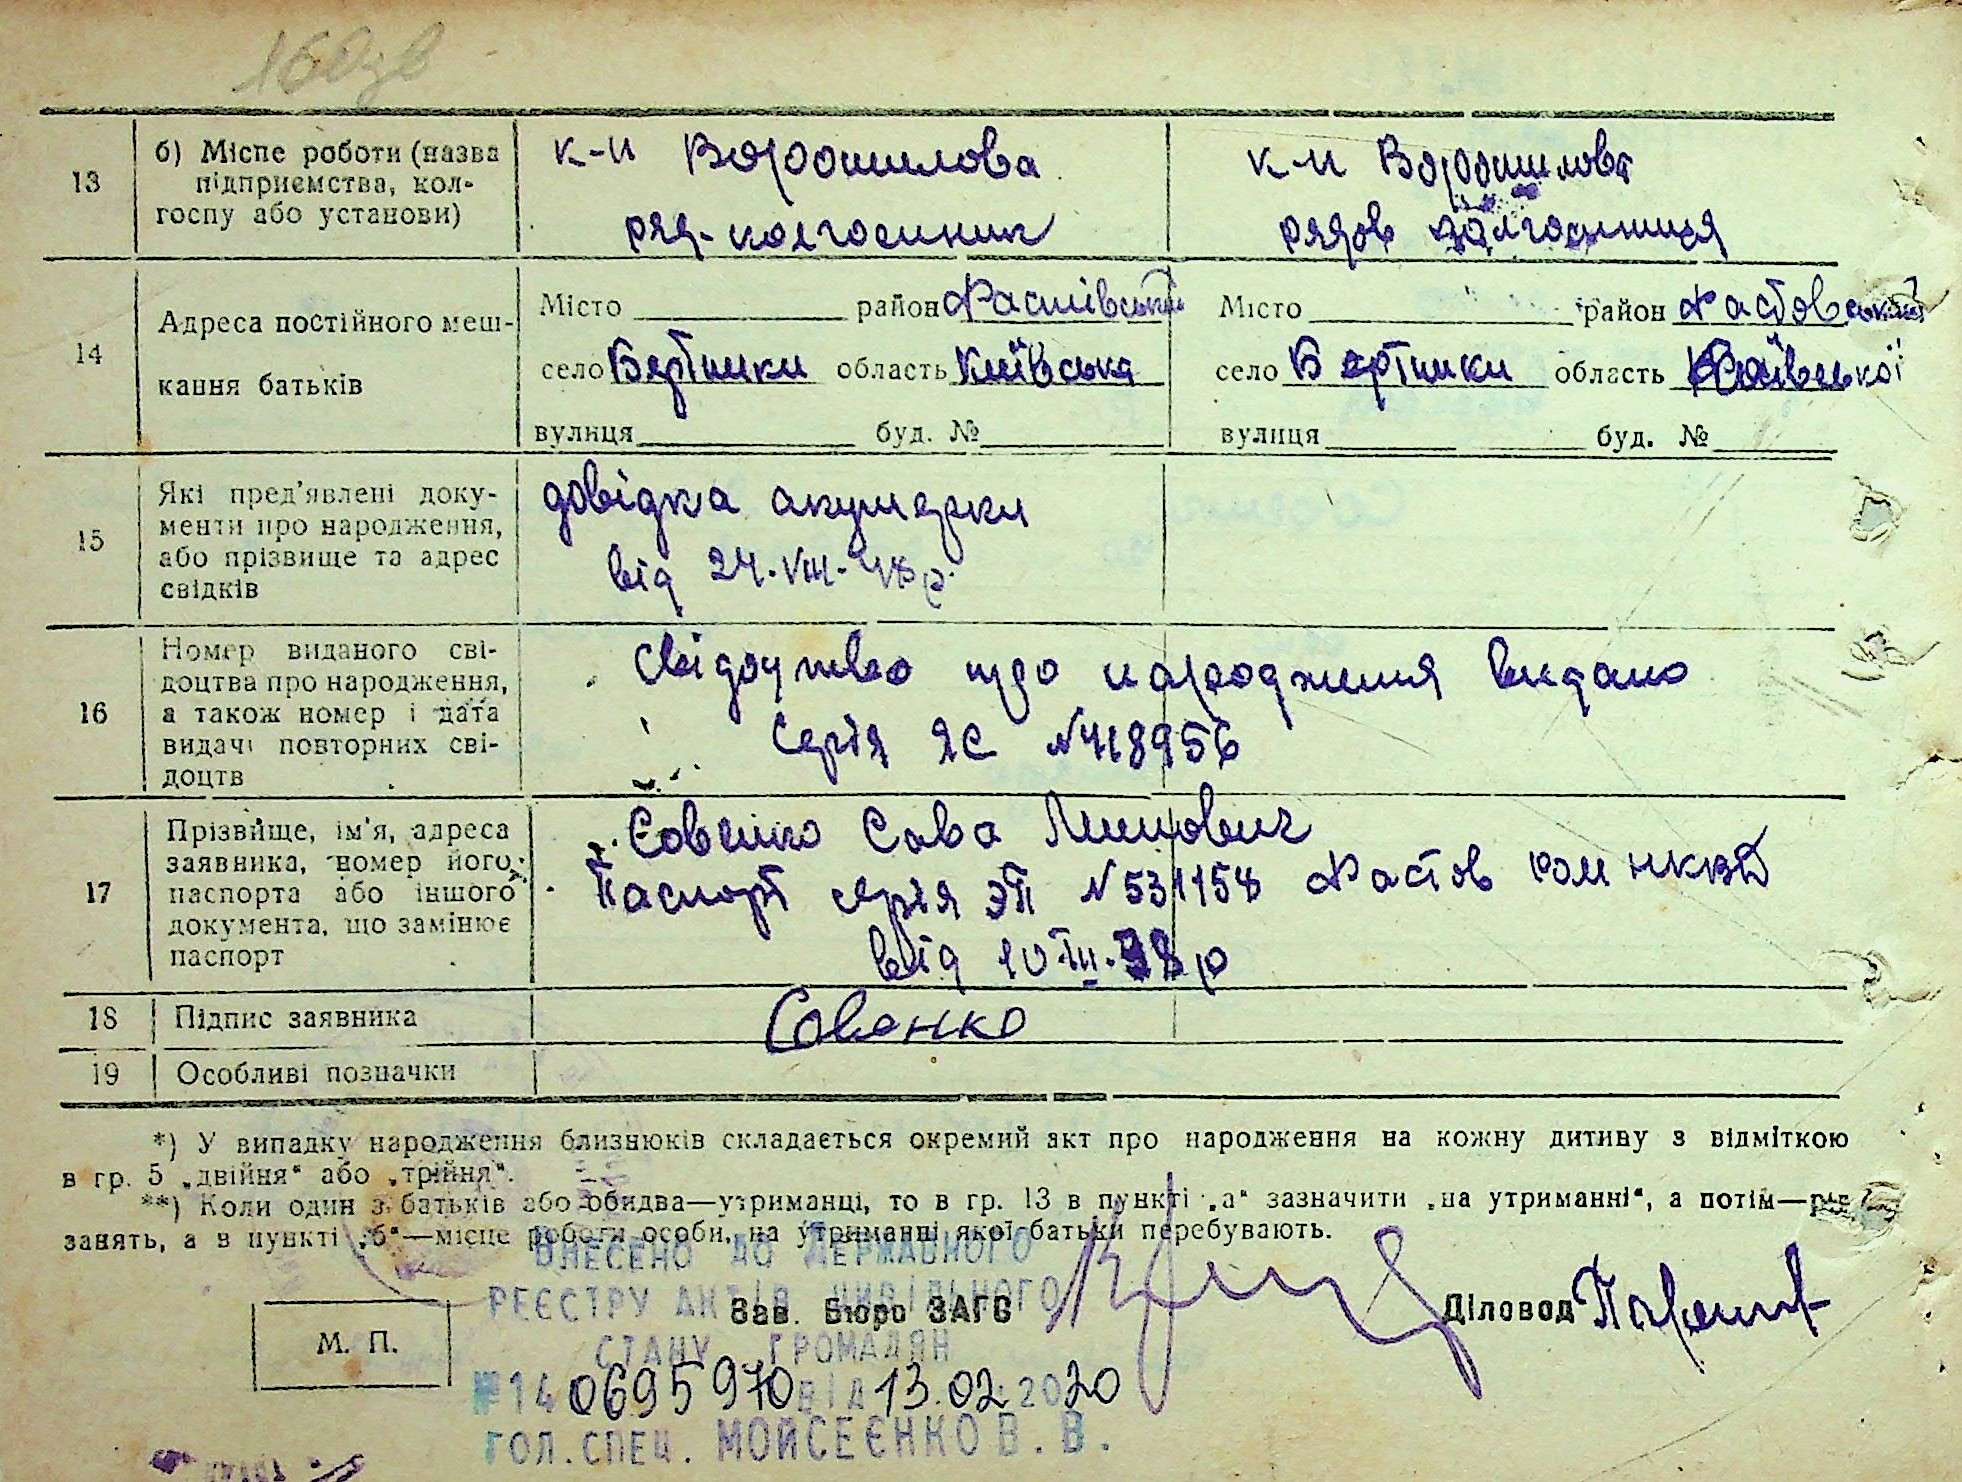 13 б) Місце роботи (назва підприємства, колгоспу або установи)
к-п Ворошилова
ряд-колгоспник
к-п Ворошилова
рядов колгоспниця
14 Адреса постійного мешкання батьків
Місто район Фастівський
село Вертники область Київська
вулиця буд. №
Місто район Фастовський
село Вертники область Київської
вулиця буд. №
15 Які пред'явлені документи про народження, або прізвище та адрес свідків
довідка акушерки
від 24.VIII.48 р.
16 Номер виданого свідоцтва про народження, а також номер і дата видачі повторних свідоцтв
Свідоцтво про народження видано
Серія ЯС №418956
17 Прізвище, ім'я, адреса заявника, номер його паспорта або іншого документа, що замінює паспорт
Совенко Сава
Паспорт серія ЭП №531158 Фастов НКВД
від 10.III.38 р
18 Підпис заявника
Совенко
19 Особливі позначки
*) У випадку народження близнюків складається окремий акт про народження на кожну дитину з відміткою
в гр. 5 „двійня“ або „трійня“.
**) Коли один з батьків або обидва—утриманці, то в гр. 13 в пункті „а“ зазначити „на утриманні“, а потім—рід
занять, а в пункті „б“—місце роботи особи, на утриманні якої батьки перебувають.
ВНЕСЕНО ДО ДЕРЖАВНОГО
РЕЄСТРУ АКТІВ ЦИВІЛЬНОГО
Зав. Бюро ЗАГС
Діловод
М. П.
СТАНУ ГРОМАДЯН
№140695970 від 13.02.2020
ГОЛ. СПЕЦ. МОЙСЕЄНКО В. В.